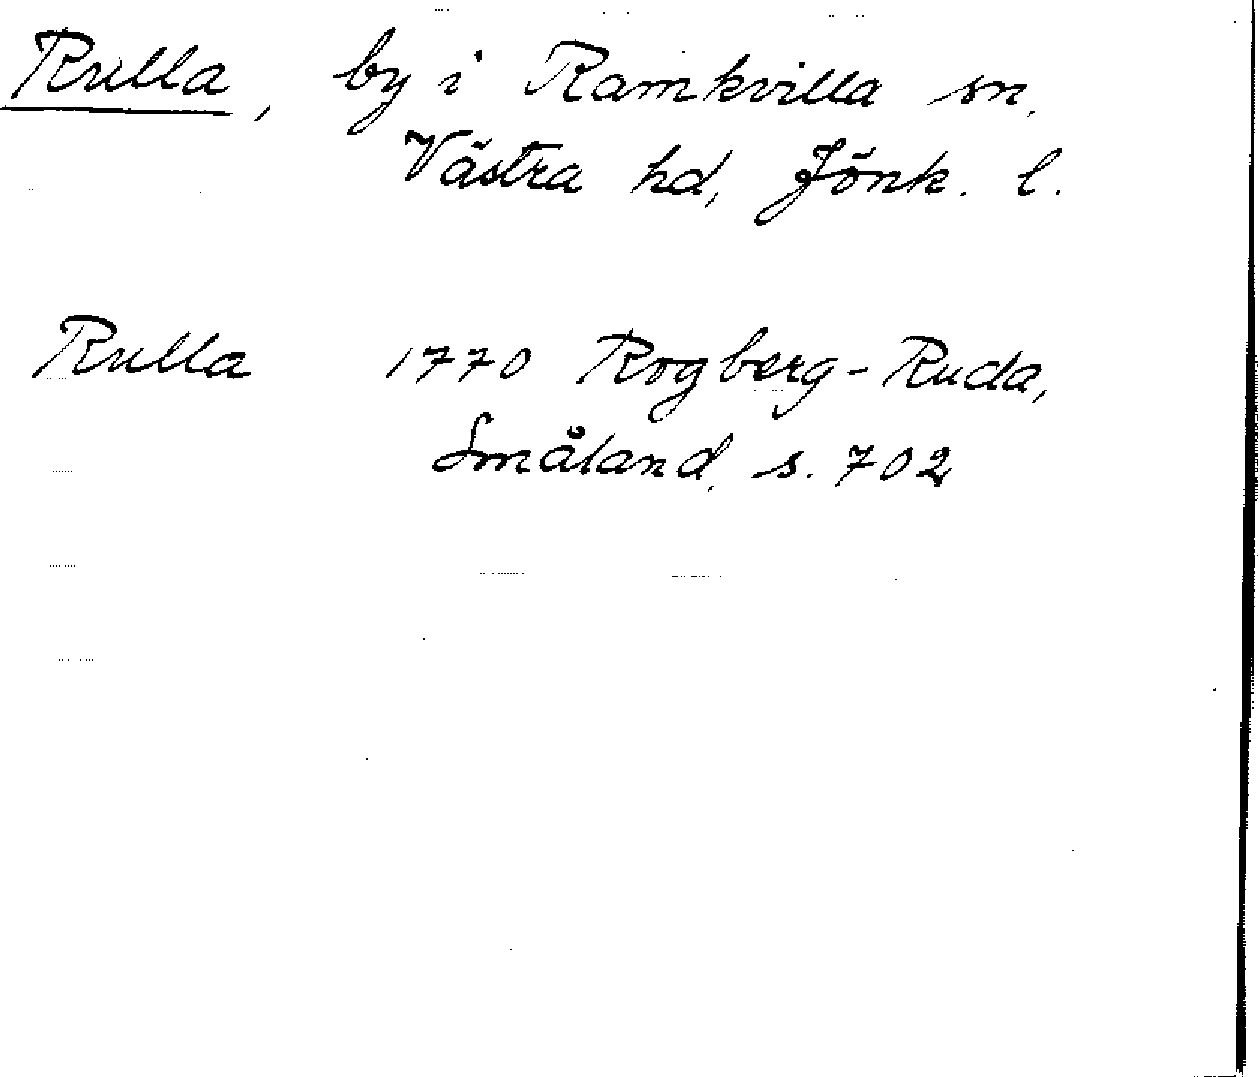 Rulla, by i Ramkvilla sn.
Västra hd, Jönk. l.
Rulla 1770 Rogberg-Ruda,
Småland, s. 702